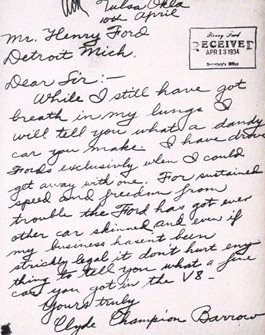 Tulsa Okla
10th April
Mr. Henry Ford
Detroit Mich.
Henry Ford
RECEIVED
APR 13 1934
Secretary's Office
Dear Sir:—
While I still have got
breath in my lungs I
will tell you what a dandy
car you make. I have drove
Fords exclusively when I could
get away with one. For sustained
speed and freedom from
trouble the Ford has got ever
other car skinned and even if
my business hasent been
strickly legal it don't hurt eny
thing to tell you what a fine
car you got in the V8.
Yours truly
Clyde Champion Barrow